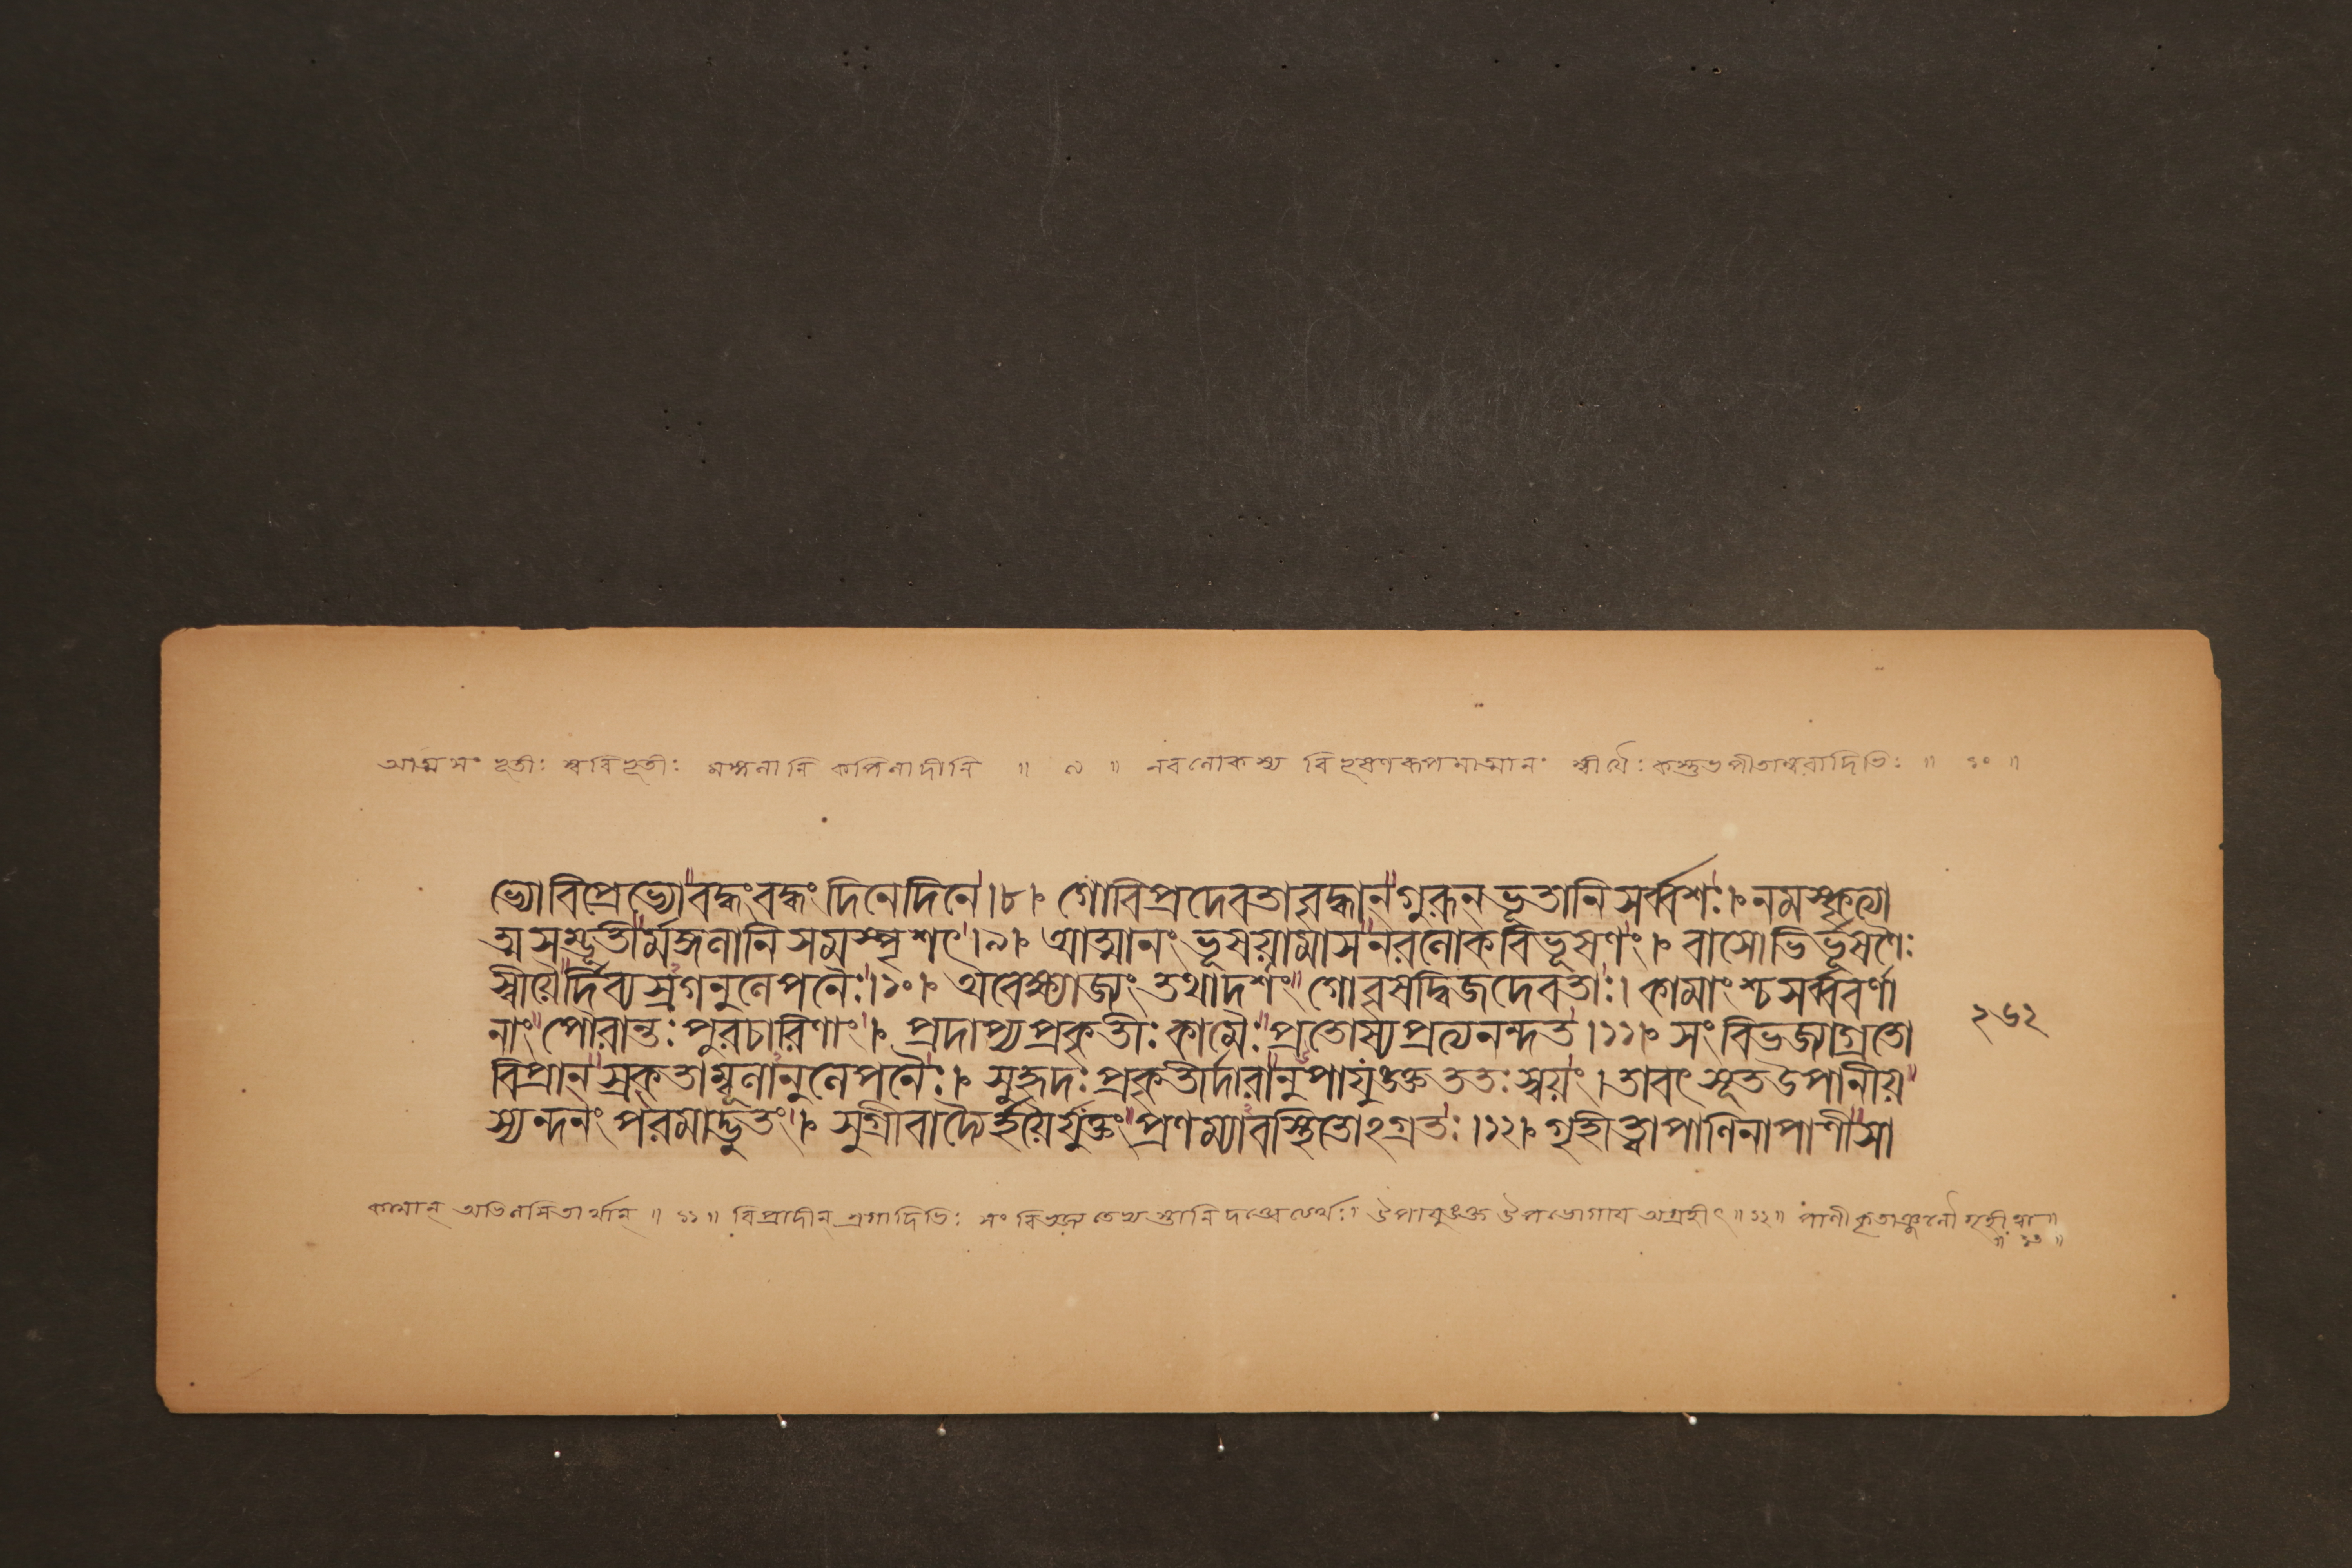 আত্মসংভূতীঃ স্ববিভূতীঃ মঙ্গলানি কপিলাদীনি ॥ ৯ ॥ নরলোকস্য বিভূষণরূপমাত্মানং স্বীয়ৈঃ কস্তুভপীতাম্বরাদিভিঃ ॥ ১০ ॥
ভ্যোবিপ্রেভ্যোবদ্বংবদ্বংদিনেদিনে।৮। গোবিপ্রদেবতাবৃদ্ধান্গুরূন্ভূতানিসর্ব্বশঃ। নমস্কৃত্যা
ত্মসম্ভূতীর্মঙ্গলানিসমস্পৃশৎ।৯। আত্মানংভূষয়ামাসনরলোকবিভূষণং। বাসোভির্ভূষণৈঃ
স্বীয়ৈর্দিব্যস্রগনুলেপনৈঃ।১০। অবেক্ষ্যাজ্যংতথাদর্শংগোবৃষদ্বিজদেবতাঃ। কামাংশ্চসর্ব্ববর্ণা
নাংপৌরান্তঃপুরচারিণাং। প্রদাপ্যপ্রকৃতীঃকামৈঃপ্রতোষ্যপ্রত্যনন্দত।১১। সংবিভজ্যাগ্রতো
২৬২
বিপ্রান্স্রক্তাম্বূলানুলেপনৈঃ। সুহৃদঃপ্রকৃতীর্দারানুপাযুঙক্তততঃস্বয়ং। তাবৎসূতউপানীয়
স্যন্দনংপরমাদ্ভুতং। সুগ্রীবাদ্যৈর্হয়ৈর্যুক্তংপ্রণম্যাবস্থিতোঽগ্রতঃ।১২। গৃহীত্বাপাণিনাপাণীসা
কামান্ অভিলষিতার্থান্ ॥ ১১ ॥ বিপ্রাদীন্ স্রগাদিভিঃ সংবিভজ্য উপাযুঙক্ত উপভোগায় অগ্রহীৎ ॥ ১২ ॥ পাণী কৃতাঞ্জলৌ গৃহীত্বা ॥
॥ ১৩ ॥